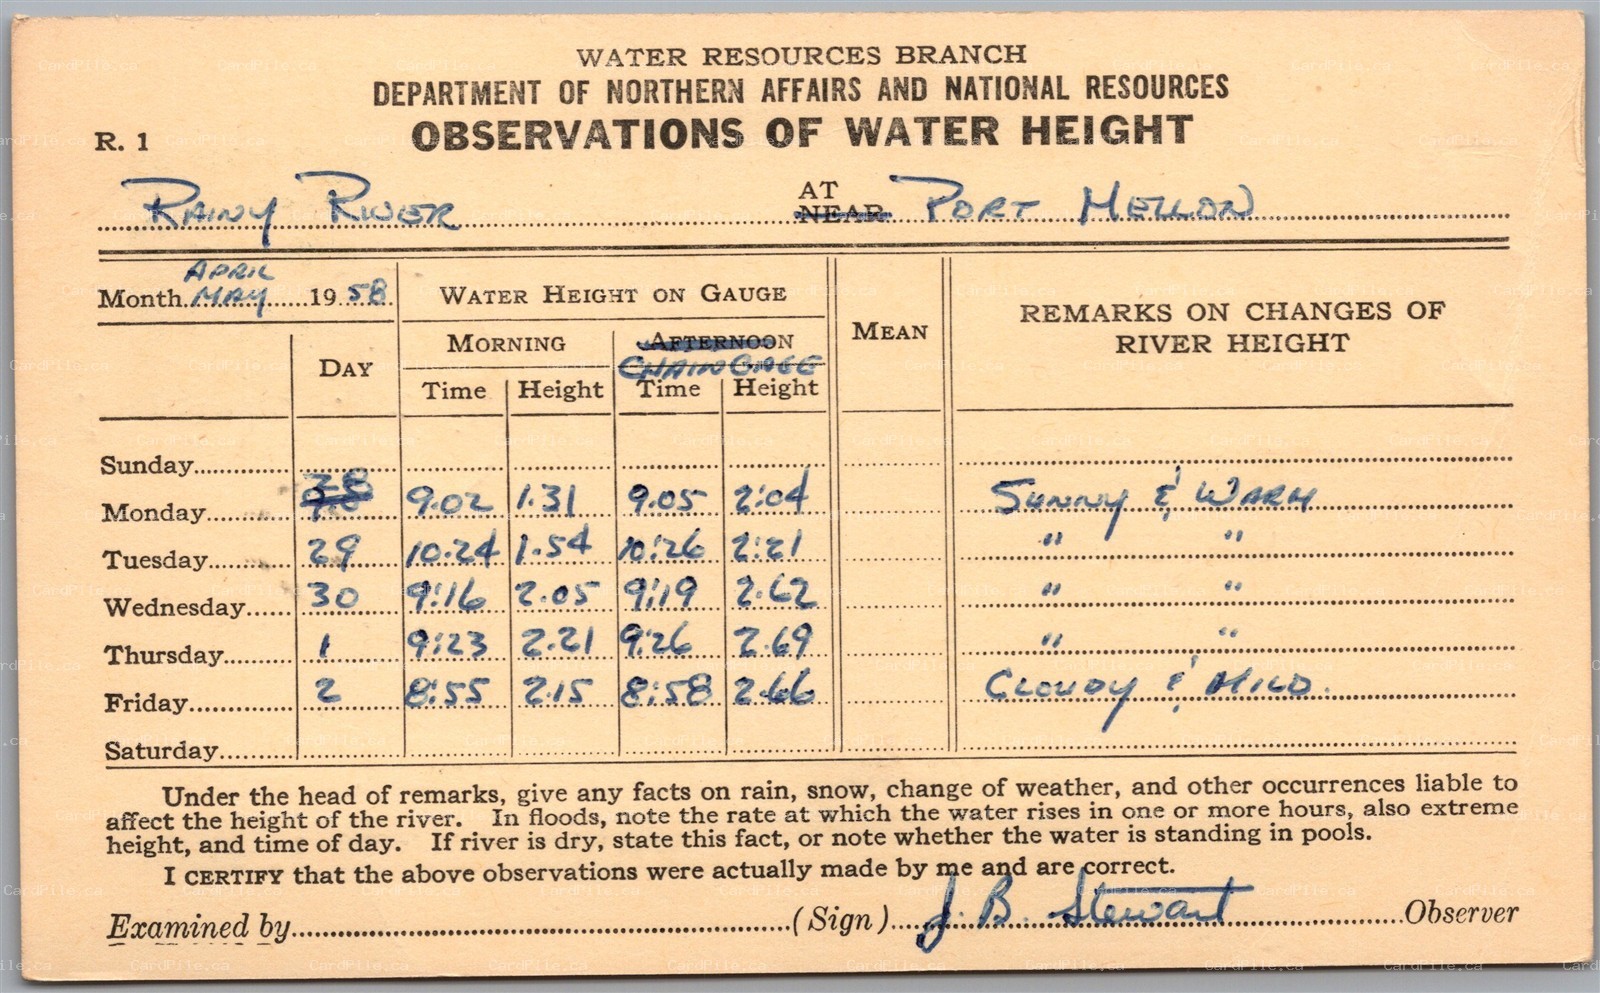 WATER RESOURCES BRANCH
DEPARTMENT OF NORTHERN AFFAIRS AND NATIONAL RESOURCES
R. 1 OBSERVATIONS OF WATER HEIGHT
RAINY RIVER AT NEAR PORT MELLON
APRIL
Month MAY 19 58 WATER HEIGHT ON GAUGE MEAN REMARKS ON CHANGES OF RIVER HEIGHT
DAY MORNING AFTERNOON
CHAIN GAGE
Time Height Time Height
Sunday
Monday 28 9.02 1.31 9.05 2:04 SUNNY & WARM
Tuesday 29 10.24 1.54 10:26 2:21 " "
Wednesday 30 9:16 2.05 9:19 2.62 " "
Thursday 1 9:23 2.21 9:26 2.69 " "
Friday 2 8:55 2.15 8:58 2.66 CLOUDY & MILD.
Saturday
Under the head of remarks, give any facts on rain, snow, change of weather, and other occurrences liable to
affect the height of the river. In floods, note the rate at which the water rises in one or more hours, also extreme
height, and time of day. If river is dry, state this fact, or note whether the water is standing in pools.
I CERTIFY that the above observations were actually made by me and are correct.
Examined by (Sign) J. B. Stewart Observer
CardPile.ca